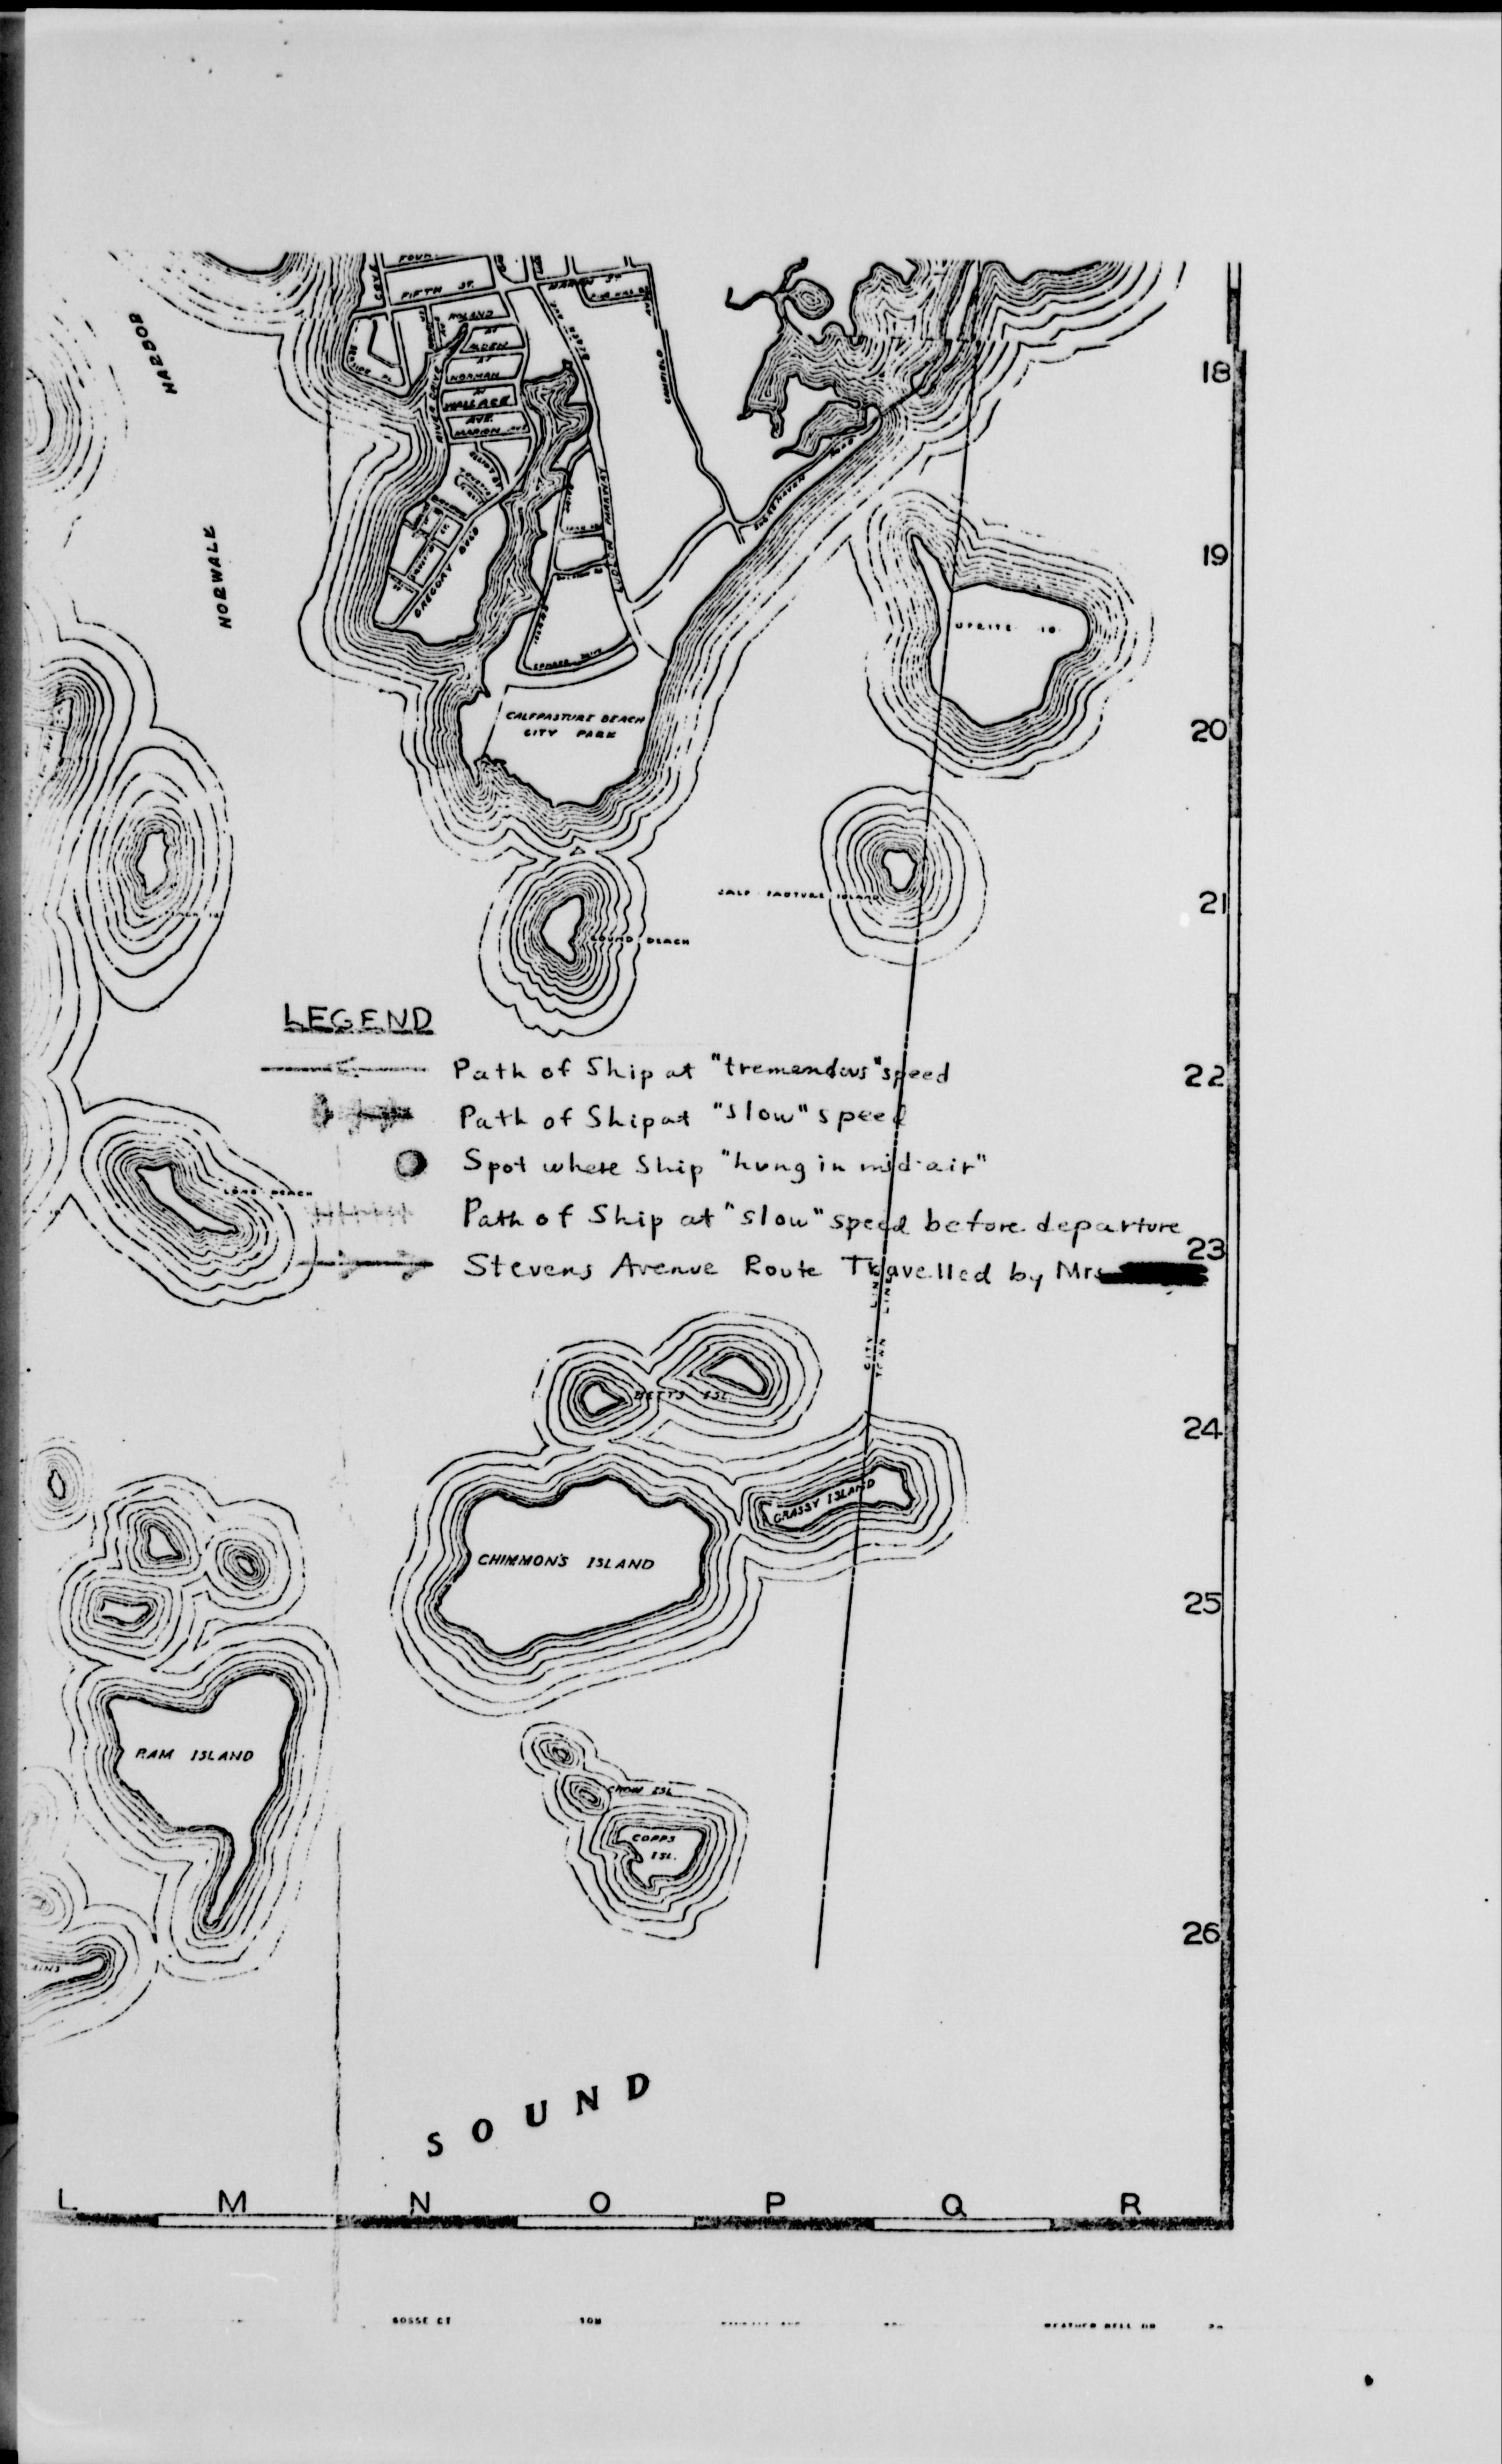 FIFTH ST.
MARVIN ST
ROLAND
AV
ALDEN
AV
NORMAN
AV
WALLACE
AVE.
MARION AVE
CANFIELD
HARBOR
NORWALK
GREGORY BLVD
18
19
20
CALFPASTURE BEACH
CITY PARK
CALF PASTURE ISLAND
21
SOUND BEACH
LEGEND
Path of Ship at "tremendous" speed
22
Path of Ship at "slow" speed
Spot where Ship "hung in mid-air"
LONG BEACH
Path of Ship at "slow" speed before departure
23
Stevens Avenue Route Travelled by Mrs
CITY LINE
TOWN LINE
BETTS ISL.
24
GRASSY ISLAND
CHIMMON'S ISLAND
25
RAM ISLAND
CROW ISL
COPPS
ISL.
26
SOUND
L M N O P Q R
BOSSE CT
HEATHER BELL DR